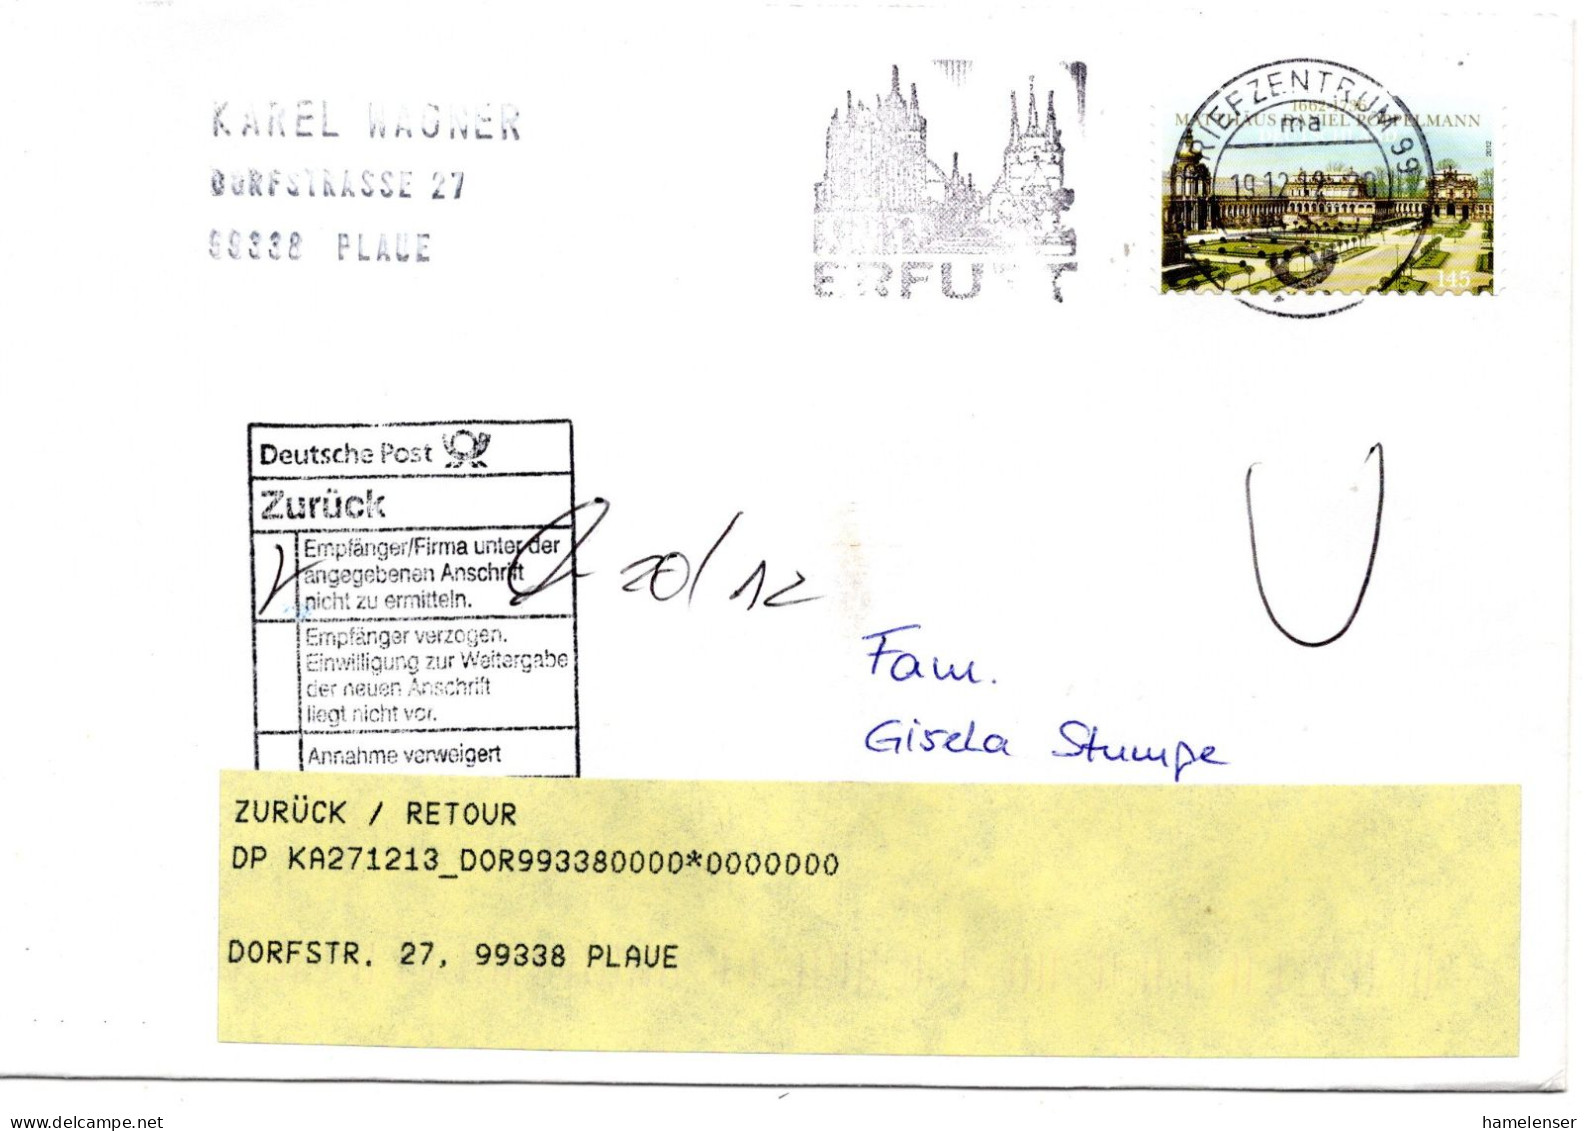 KAREL WAGNER
DORFSTRASSE 27
99338 PLAUE
ERFURT
BRIEFZENTRUM 99
ma
19.12.12
1662-1736
MATTHÄUS DANIEL PÖPPELMANN
2012
145
Deutsche Post
Zurück
Empfänger/Firma unter der
angegebenen Anschrift
nicht zu ermitteln.
Empfänger verzogen.
Einwilligung zur Weitergabe
der neuen Anschrift
liegt nicht vor.
Annahme verweigert
20/12
Fam.
Gisela Stumpe
ZURÜCK / RETOUR
DP KA271213_DOR993380000*0000000
DORFSTR. 27, 99338 PLAUE
www.delcampe.net
hamelenser